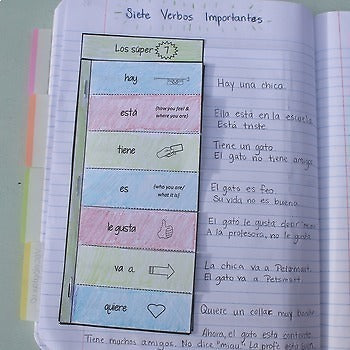 Siete Verbos Importantes
Los súper 7
hay
Hay una chica.
está
(how you feel & where you are)
Ella está en la escuela
Está triste.
tiene
Tiene un gato.
El gato no tiene amigos
es
(who you are/ what it is)
El gato es feo.
Su vida no es buena.
le gusta
El gato le gusta decir "miau"
A la profesora, no le gusta
va a
La chica va a Petsmart.
El gato va a Petsmart.
quiere
Quiere un collar muy bonito
Ahora, el gato está contento.
Tiene muchos amigos. No dice "miau." La profe está bien